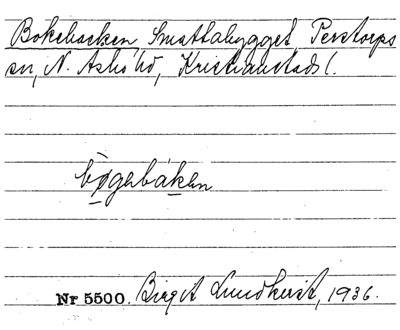 Bokebacken, Smattabygget Perstorps
sn, N. Åsbo hd, Kristianstads l.
bø̀gebáken
Nr 5500. Birgit Lundkvist, 1936.